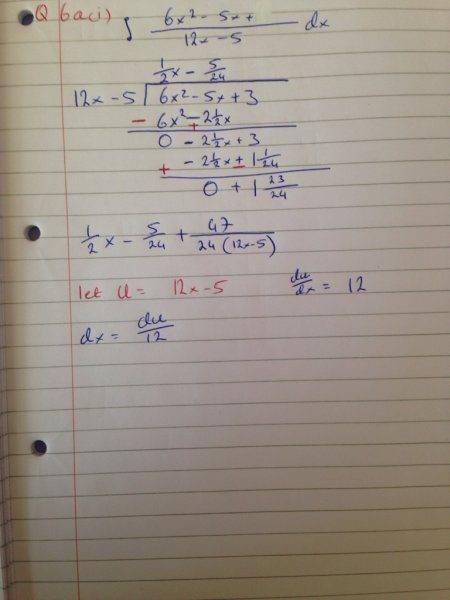 Q 6a(i) ∫ (6x² - 5x +)/(12x - 5) dx
½x - 5/24
12x - 5 | 6x² - 5x + 3
- 6x² - + 2½x
0 - 2½x + 3
+ - 2½x + - 1 1/24
0 + 1 23/24
½x - 5/24 + 47/24(12x-5)
let u = 12x - 5 du/dx = 12
dx = du/12